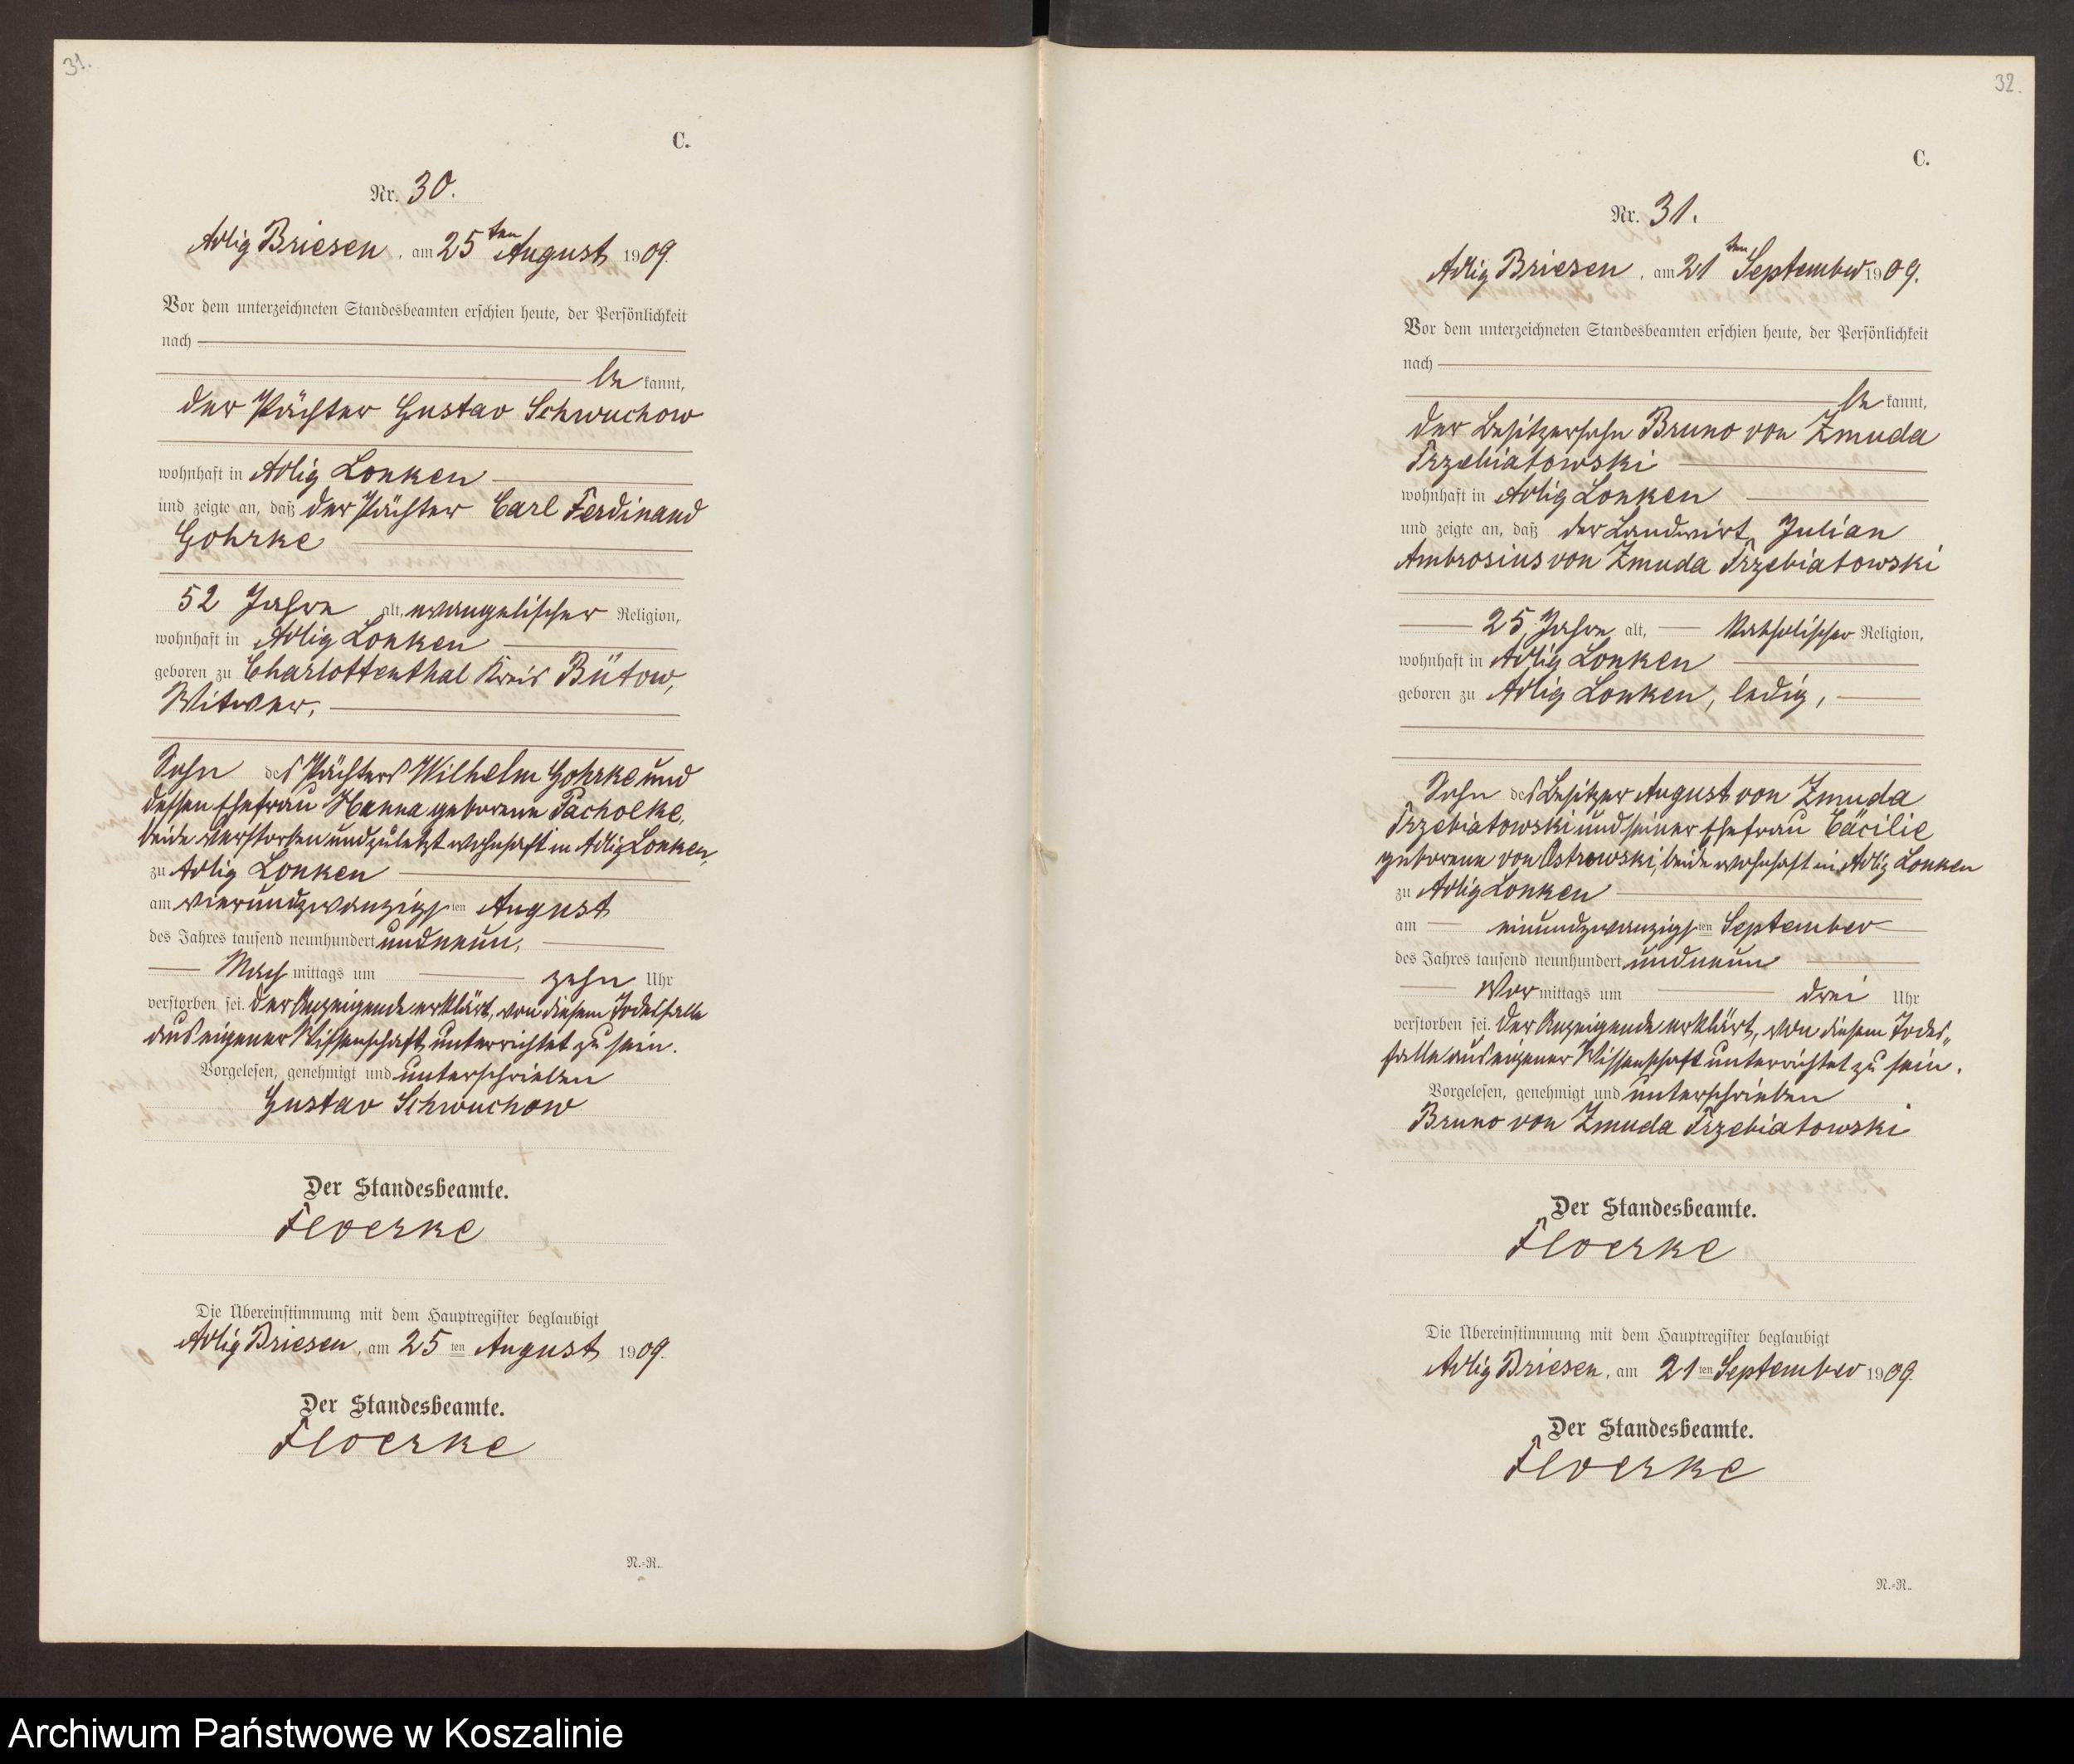 31.
C.
Nr. 30.
Adlig Briesen, am 25ten August 1909.
Vor dem unterzeichneten Standesbeamten erschien heute, der Persönlichkeit
nach
be kannt,
der Pächter Gustav Schwuchow
wohnhaft in Adlig Lonken
und zeigte an, daß der Pächter Carl Ferdinand
Gohrke
52 Jahre alt, evangelischer Religion,
wohnhaft in Adlig Lonken
geboren zu Charlottenthal Kreis Bütow,
Witwer,
Sohn des Pächters Wilhelm Gohrke und
dessen Ehefrau Hanna geborene Pacholke,
beide verstorben und zuletzt wohnhaft in Adlig Lonken,
zu Adlig Lonken
am vierundzwanzigsten August
des Jahres tausend neunhundert und neun,
Nach mittags um zehn Uhr
verstorben sei. Der Anzeigende erklärt, von diesem Todesfalle
aus eigener Wissenschaft unterrichtet zu sein.
Vorgelesen, genehmigt und unterschrieben
Gustav Schwuchow
Der Standesbeamte.
Floerke
Die Übereinstimmung mit dem Hauptregister beglaubigt
Adlig Briesen, am 25ten August 1909.
Der Standesbeamte.
Floerke
N.=R.
32.
C.
Nr. 31.
Adlig Briesen, am 21ten September 1909.
Vor dem unterzeichneten Standesbeamten erschien heute, der Persönlichkeit
nach
be kannt,
der Besitzersohn Bruno von Zmuda
Trzebiatowski
wohnhaft in Adlig Lonken
und zeigte an, daß der Landwirt Julian
Ambrosius von Zmuda Trzebiatowski
25 Jahre alt, katholischer Religion,
wohnhaft in Adlig Lonken
geboren zu Adlig Lonken, ledig,
Sohn des Besitzer August von Zmuda
Trzebiatowski und seiner Ehefrau Cäcilie
geborene von Ostrowski, beide wohnhaft in Adlig Lonken
zu Adlig Lonken
am einundzwanzigsten September
des Jahres tausend neunhundert und neun
Vor mittags um drei Uhr
verstorben sei. Der Anzeigende erklärt, von diesem Todes„
falle aus eigener Wissenschaft unterrichtet zu sein.
Vorgelesen, genehmigt und unterschrieben
Bruno von Zmuda Trzebiatowski
Der Standesbeamte.
Floerke
Die Übereinstimmung mit dem Hauptregister beglaubigt
Adlig Briesen, am 21ten September 1909.
Der Standesbeamte.
Floerke
N.=R.
Archiwum Państwowe w Koszalinie